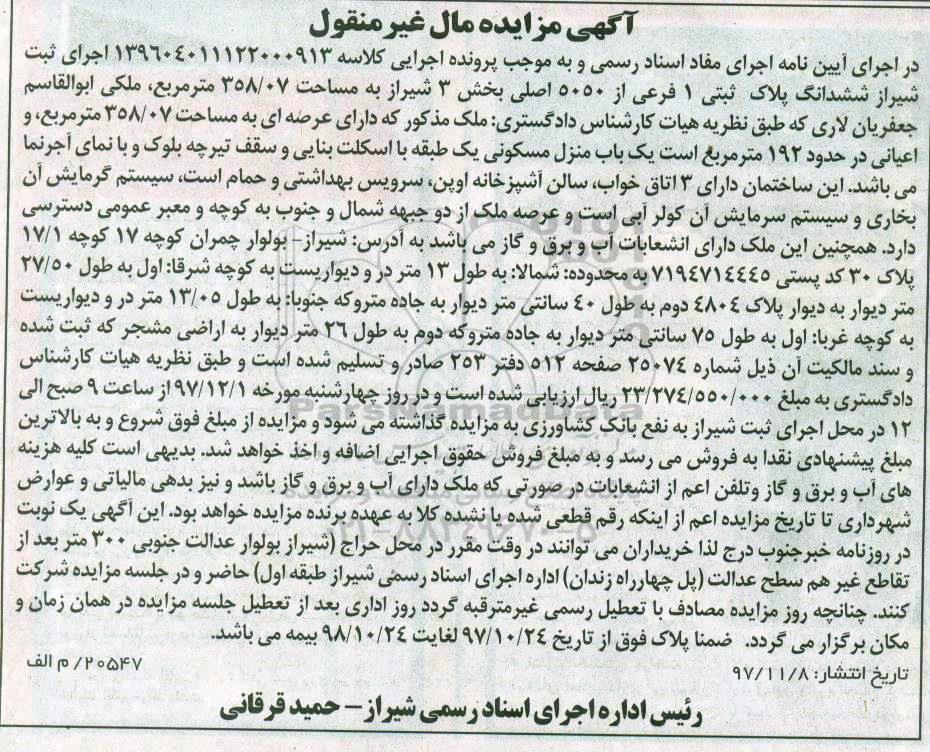 آگهی مزایده مال غیر منقول
در اجرای آیین نامه اجرای مفاد اسناد رسمی و به موجب پرونده اجرایی کلاسه ۱۳۹۶۰۴۰۱۱۱۲۲۰۰۰۹۱۳ اجرای ثبت
شیراز ششدانگ پلاک ثبتی ۱ فرعی از ۵۰۵۰ اصلی بخش ۳ شیراز به مساحت ۳۵۸/۰۷ مترمربع، ملکی ابوالقاسم
جعفریان لاری که طبق نظریه هیات کارشناس دادگستری: ملک مذکور که دارای عرصه ای به مساحت ۳۵۸/۰۷ مترمربع، و
اعیانی در حدود ۱۹۲ مترمربع است یک باب منزل مسکونی یک طبقه با اسکلت بنایی و سقف تیرچه بلوک و با نمای آجرنما
می باشد. این ساختمان دارای ۳ اتاق خواب، سالن آشپزخانه اوپن، سرویس بهداشتی و حمام است، سیستم گرمایش آن
بخاری و سیستم سرمایش آن کولر آبی است و عرصه ملک از دو جبهه شمال و جنوب به کوچه و معبر عمومی دسترسی
دارد. همچنین این ملک دارای انشعابات آب و برق و گاز می باشد به آدرس: شیراز- بولوار چمران کوچه ۱۷ کوچه ۱۷/۱
پلاک ۳۰ کد پستی ۷۱۹۴۷۱۴۴۴۵ به محدوده: شمالا: به طول ۱۳ متر در و دیواریست به کوچه شرقا: اول به طول ۲۷/۵۰
متر دیوار به دیوار پلاک ۴۸۰۴ دوم به طول ۴۰ سانتی متر دیوار به جاده متروکه جنوبا: به طول ۱۳/۰۵ متر در و دیواریست
به کوچه غربا: اول به طول ۷۵ سانتی متر دیوار به جاده متروکه دوم به طول ۲۶ متر دیوار به اراضی مشجر که ثبت شده
و سند مالکیت آن ذیل شماره ۲۵۰۷۴ صفحه ۵۱۲ دفتر ۲۵۳ صادر و تسلیم شده است و طبق نظریه هیات کارشناس
دادگستری به مبلغ ۲۳/۲۷۴/۵۵۰/۰۰۰ ریال ارزیابی شده است و در روز چهارشنبه مورخه ۹۷/۱۲/۱ از ساعت ۹ صبح الی
۱۲ در محل اجرای ثبت شیراز به نفع بانک کشاورزی به مزایده گذاشته می شود و مزایده از مبلغ فوق شروع و به بالاترین
مبلغ پیشنهادی نقدا به فروش می رسد و به مبلغ فروش حقوق اجرایی اضافه و اخذ خواهد شد. بدیهی است کلیه هزینه
های آب و برق و گاز وتلفن اعم از انشعابات در صورتی که ملک دارای آب و برق و گاز باشد و نیز بدهی مالیاتی و عوارض
شهرداری تا تاریخ مزایده اعم از اینکه رقم قطعی شده یا نشده کلا به عهده برنده مزایده خواهد بود. این آگهی یک نوبت
در روزنامه خبرجنوب درج لذا خریداران می توانند در وقت مقرر در محل حراج (شیراز بولوار عدالت جنوبی ۳۰۰ متر بعد از
تقاطع غیر هم سطح عدالت (پل چهارراه زندان) اداره اجرای اسناد رسمی شیراز طبقه اول) حاضر و در جلسه مزایده شرکت
کنند. چنانچه روز مزایده مصادف با تعطیل رسمی غیرمترقبه گردد روز اداری بعد از تعطیل جلسه مزایده در همان زمان و
مکان برگزار می گردد. ضمنا پلاک فوق از تاریخ ۹۷/۱۰/۲۴ لغایت ۹۸/۱۰/۲۴ بیمه می باشد.
تاریخ انتشار: ۹۷/۱۱/۸
۲۰۵۴۷/ م الف
رئیس اداره اجرای اسناد رسمی شیراز – حمید قرقانی
ParsNamadData